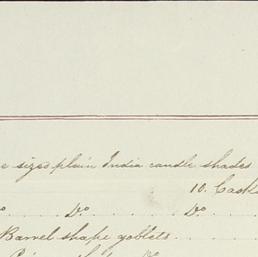 sized plain India candle shades
10. Cask
Do Do
Barrel shape goblets